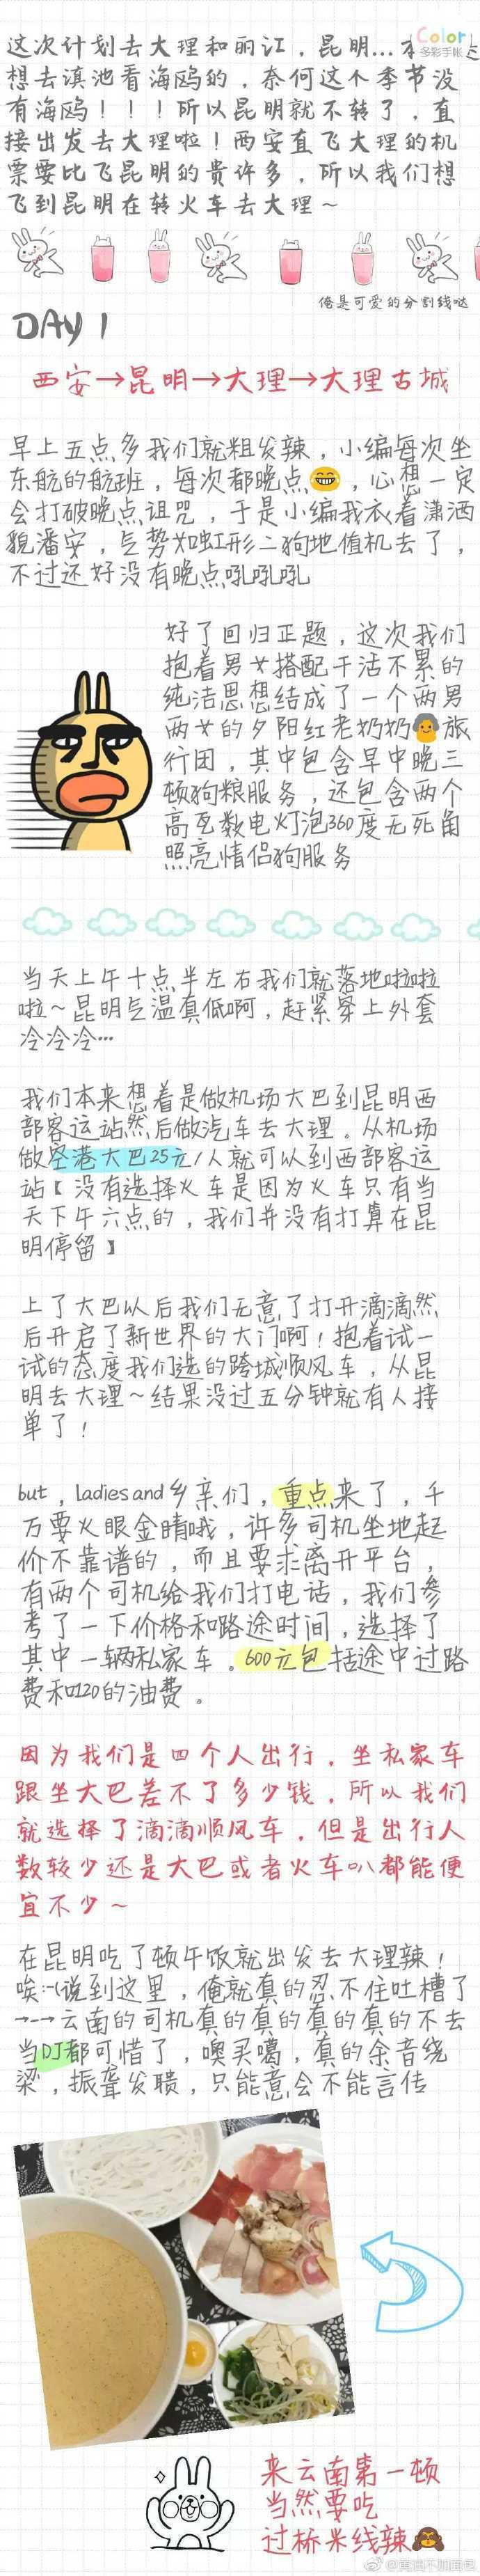 Color
多彩手帐
这次计划去大理和丽江，昆明...本
想去滇池看海鸥的，奈何这个季节没
有海鸥！！！所以昆明就不转了，直
接出发去大理啦！西安直飞大理的机
票要比飞昆明的贵许多，所以我们想
飞到昆明在转火车去大理～
俺是可爱的分割线哒
DAY 1
西安→昆明→大理→大理古城
早上五点多我们就粗发辣，小编每次坐
东航的航班，每次都晚点😂，心想一定
会打破晚点诅咒，于是小编我衣着潇洒
貌潘安，气势如虹形二狗地值机去了，
不过还好没有晚点吼吼吼
好了回归正题，这次我们
抱着男女搭配干活不累的
纯洁思想结成了一个两男
两女的夕阳红老奶奶👵旅
行团，其中包含早中晚三
顿狗粮服务，还包含两个
高瓦数电灯泡360度无死角
照亮情侣狗服务
当天上午十点半左右我们就落地啦啦
啦～昆明气温真低啊，赶紧穿上外套
冷冷冷…
我们本来想着是做机场大巴到昆明西
部客运站然后做汽车去大理。从机场
做空港大巴25元/人就可以到西部客运
站【没有选择火车是因为火车只有当
天下午六点的，我们并没有打算在昆
明停留】
上了大巴以后我们无意了打开滴滴然
后开启了新世界的大门啊！抱着试一
试的态度我们选的跨城顺风车，从昆
明去大理～结果没过五分钟就有人接
单了！
but，Ladies and乡亲们，重点来了，千
万要火眼金睛哦，许多司机坐地起
价不靠谱的，而且要求离开平台，
有两个司机给我们打电话，我们参
考了一下价格和路途时间，选择了
其中一辆私家车。600元包括途中过路
费和120的油费。
因为我们是四个人出行，坐私家车
跟坐大巴差不了多少钱，所以我们
就选择了滴滴顺风车，但是出行人
数较少还是大巴或者火车叭都能便
宜不少～
在昆明吃了顿午饭就出发去大理辣！
唉:-(说到这里，俺就真的忍不住吐槽了
→-→云南的司机真的真的真的真的不去
当DJ都可惜了，噢买噶，真的余音绕
梁，振聋发聩，只能意会不能言传
来云南第一顿
当然要吃
过桥米线辣🙈